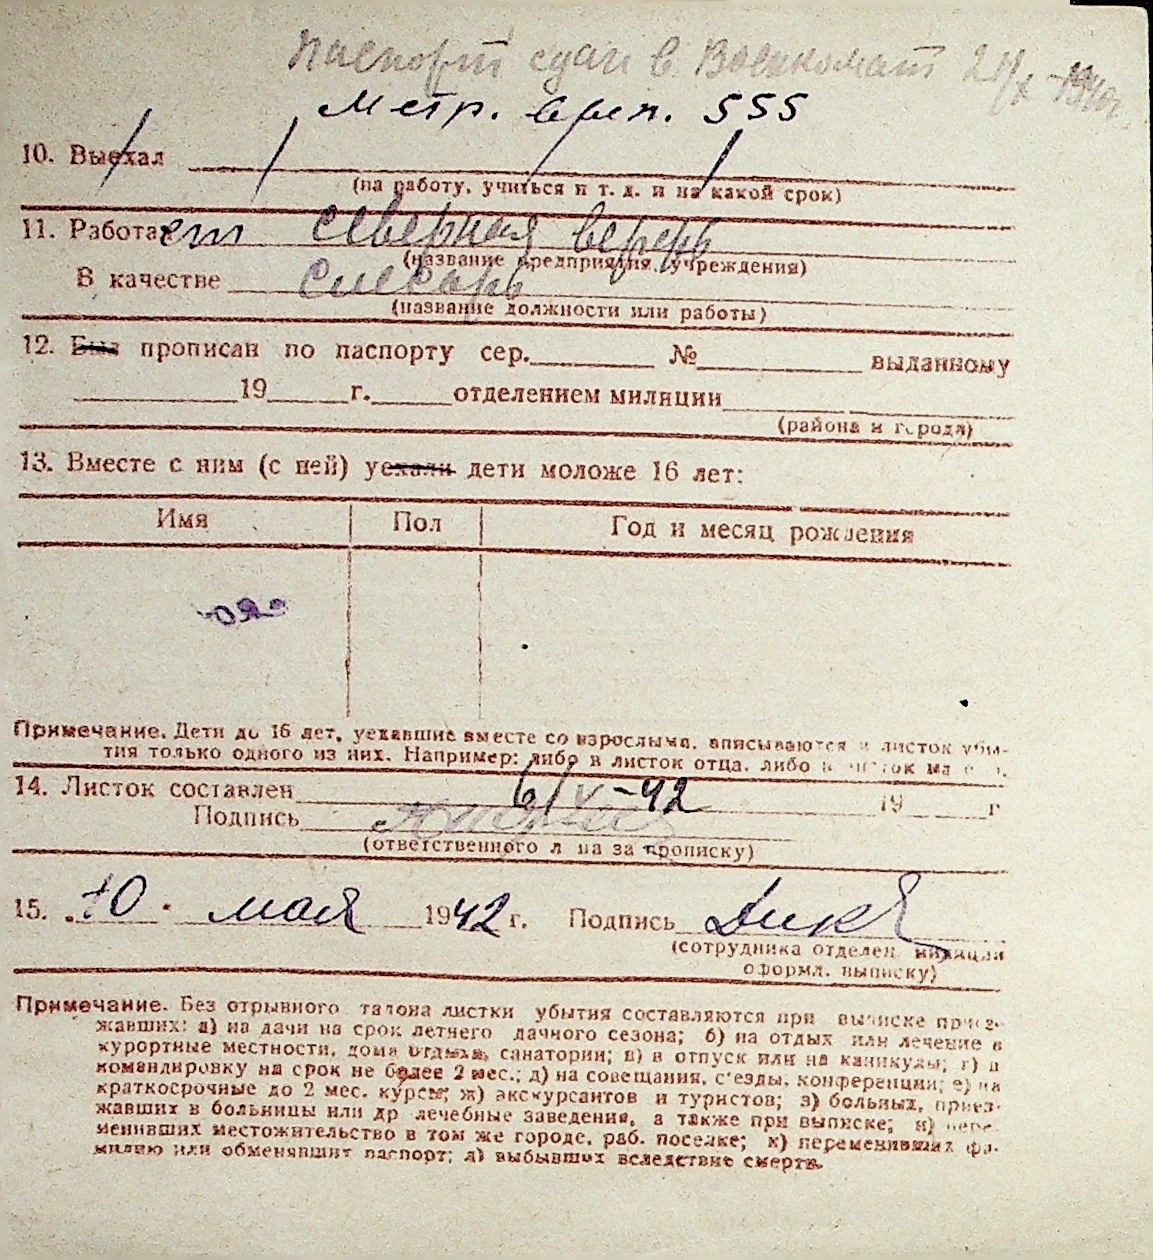 Паспорт сдан в Военкомат 21/X -1940г.
Метр. врем. 555
10. Выехал
(на работу, учиться и т. д. и на какой срок)
11. Работает северная верфь
(название предприятия, учреждения)
В качестве слесарь
(название должности или работы)
12. Был прописан по паспорту сер. № выданному
19 г. отделением милиции
(района и города)
13. Вместе с ним (с ней) уехали дети моложе 16 лет:
Имя Пол Год и месяц рождения
Примечание. Дети до 16 лет, уехавшие вместе со взрослыми, вписываются в листок убы-
тия только одного из них. Например: либо в листок отца, либо в листок
14. Листок составлен 6/V-42 19 г
Подпись
(ответственного л на за прописку)
15. 10 · мая 1942 г. Подпись
(сотрудника отделен. милиции
оформл. выписку)
Примечание. Без отрывного талона листки убытия составляются при выписке приез-
жавших: а) на дачи на срок летнего дачного сезона; б) на отдых или лечение в
курортные местности, дома отдыха, санатории; в) в отпуск или на каникулы; г) в
командировку на срок не более 2 мес.; д) на совещания, с'езды, конференции; е) на
краткосрочные до 2 мес. курсы; ж) экскурсантов и туристов; з) больных, приез-
жавших в больницы или др лечебные заведения, а также при выписке; и) пере-
менивших местожительство в том же городе, раб. поселке; к) переменивших фа-
милию или обменявших паспорт; л) выбывших вследствие смерти.